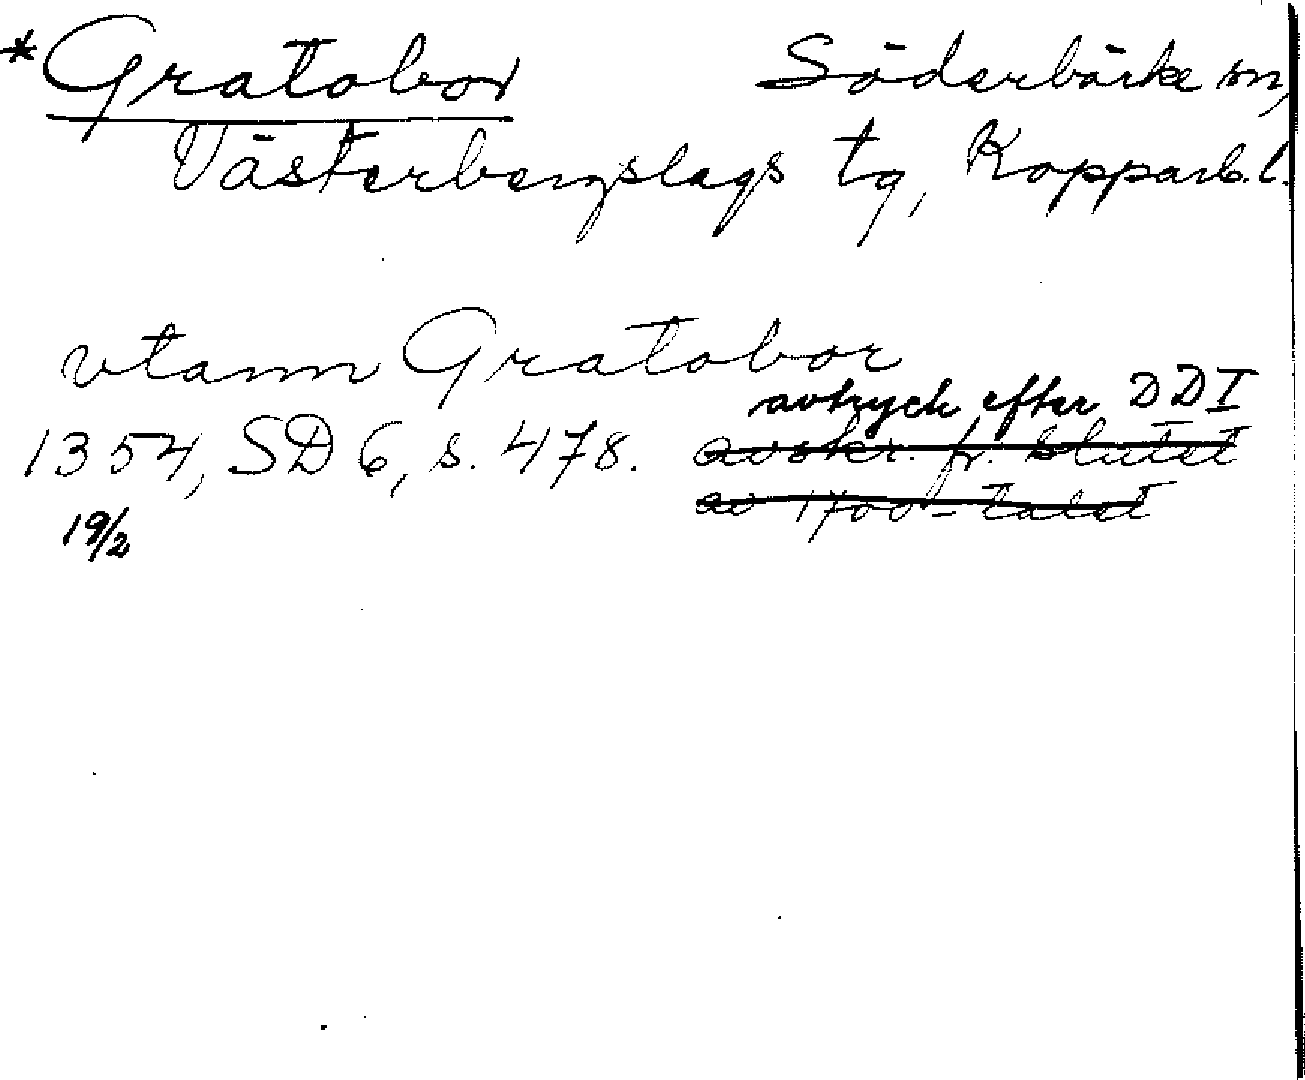 *Gratobor Söderbärke sn,
Västerbergslags tg, Kopparb.l.
vtann Gratobor
avtryck efter DD I
1354, SD 6, s. 478. avskr. fr. slutet
av 1700-talet
19/2